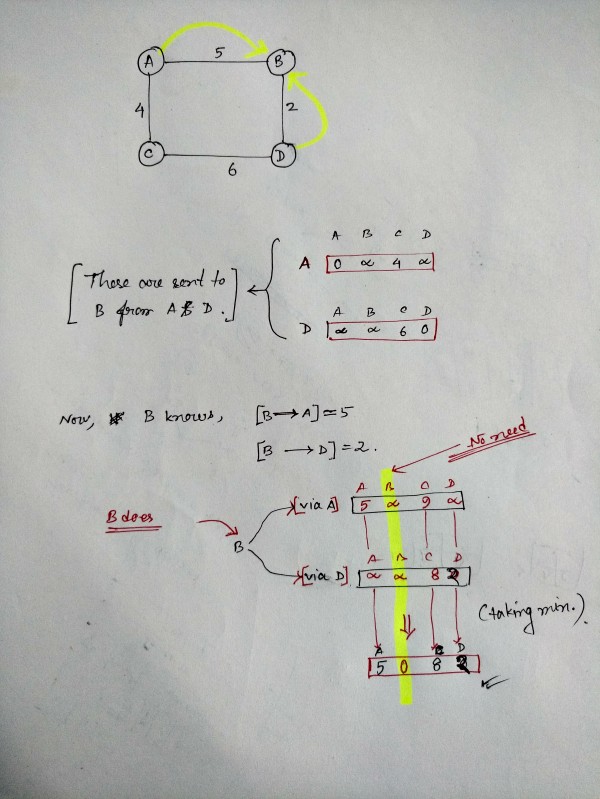 A 5 B
4 2
C 6 D
A B C D
A 0 ∝ 4 ∝
[These are sent to
B from A & D.]
A B C D
D ∝ ∝ 6 0
Now, B knows, [B→A]=5
[B→D]=2.
No need
A B C D
[via A] 5 ∝ 9 ∝
B does
B
A B C D
[via D] ∝ ∝ 8 2
(taking min.).
A B C D
5 0 8 2